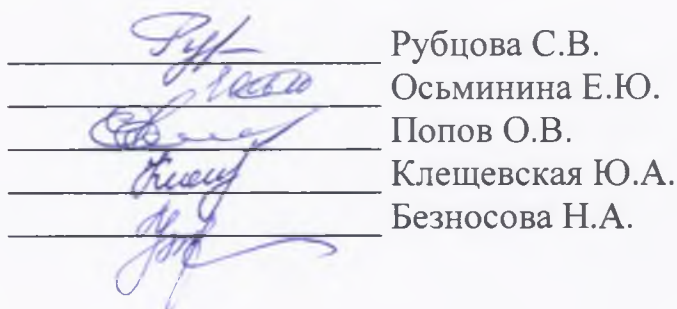 Рубцова С.В.
Осьминина Е.Ю.
Попов О.В.
Клещевская Ю.А.
Безносова Н.А.